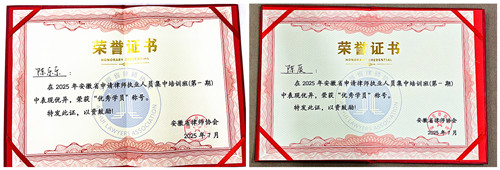 荣誉证书
HONORARY CREDENTIAL
陈东东:
在2025年安徽省申请律师执业人员集中培训班(第一期)
中表现优异,荣获“优秀学员”称号。
特发此证,以资鼓励!
LAWYERS ASSOCIATION
安徽省律师协会
2025年7月
荣誉证书
HONORARY CREDENTIAL
陈辰:
在2025年安徽省申请律师执业人员集中培训班(第一期)
中表现优异,荣获“优秀学员”称号。
特发此证,以资鼓励!
安徽省律师协会
2025年7月